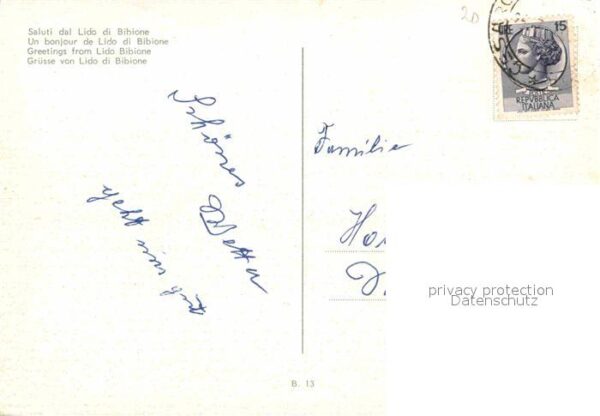 Saluti dal Lido di Bibione
Un bonjour de Lido di Bibione
Greetings from Lido Bibione
Grüsse von Lido di Bibione
2D
LIRE 15
REPVBBLICA
ITALIANA
Schönes
Wetter
geht uns gut
Familie
Ho
D
privacy protection
Datenschutz
B. 13